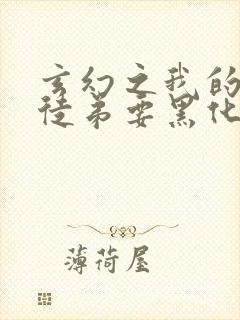 玄幻之我的
徒弟要黑化
薄荷屋